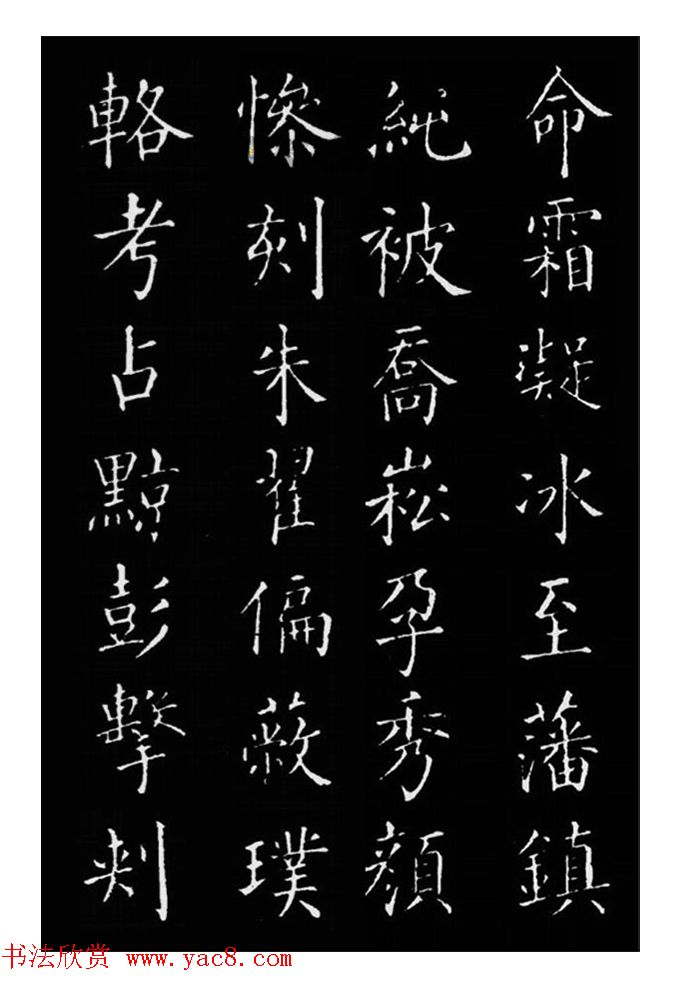 命霜凝冰至藩鎮
純被喬崧孕秀顏
慘刻朱翟偏蔽璞
輅考占黥彭擊刺
书法欣赏 www.yac8.com